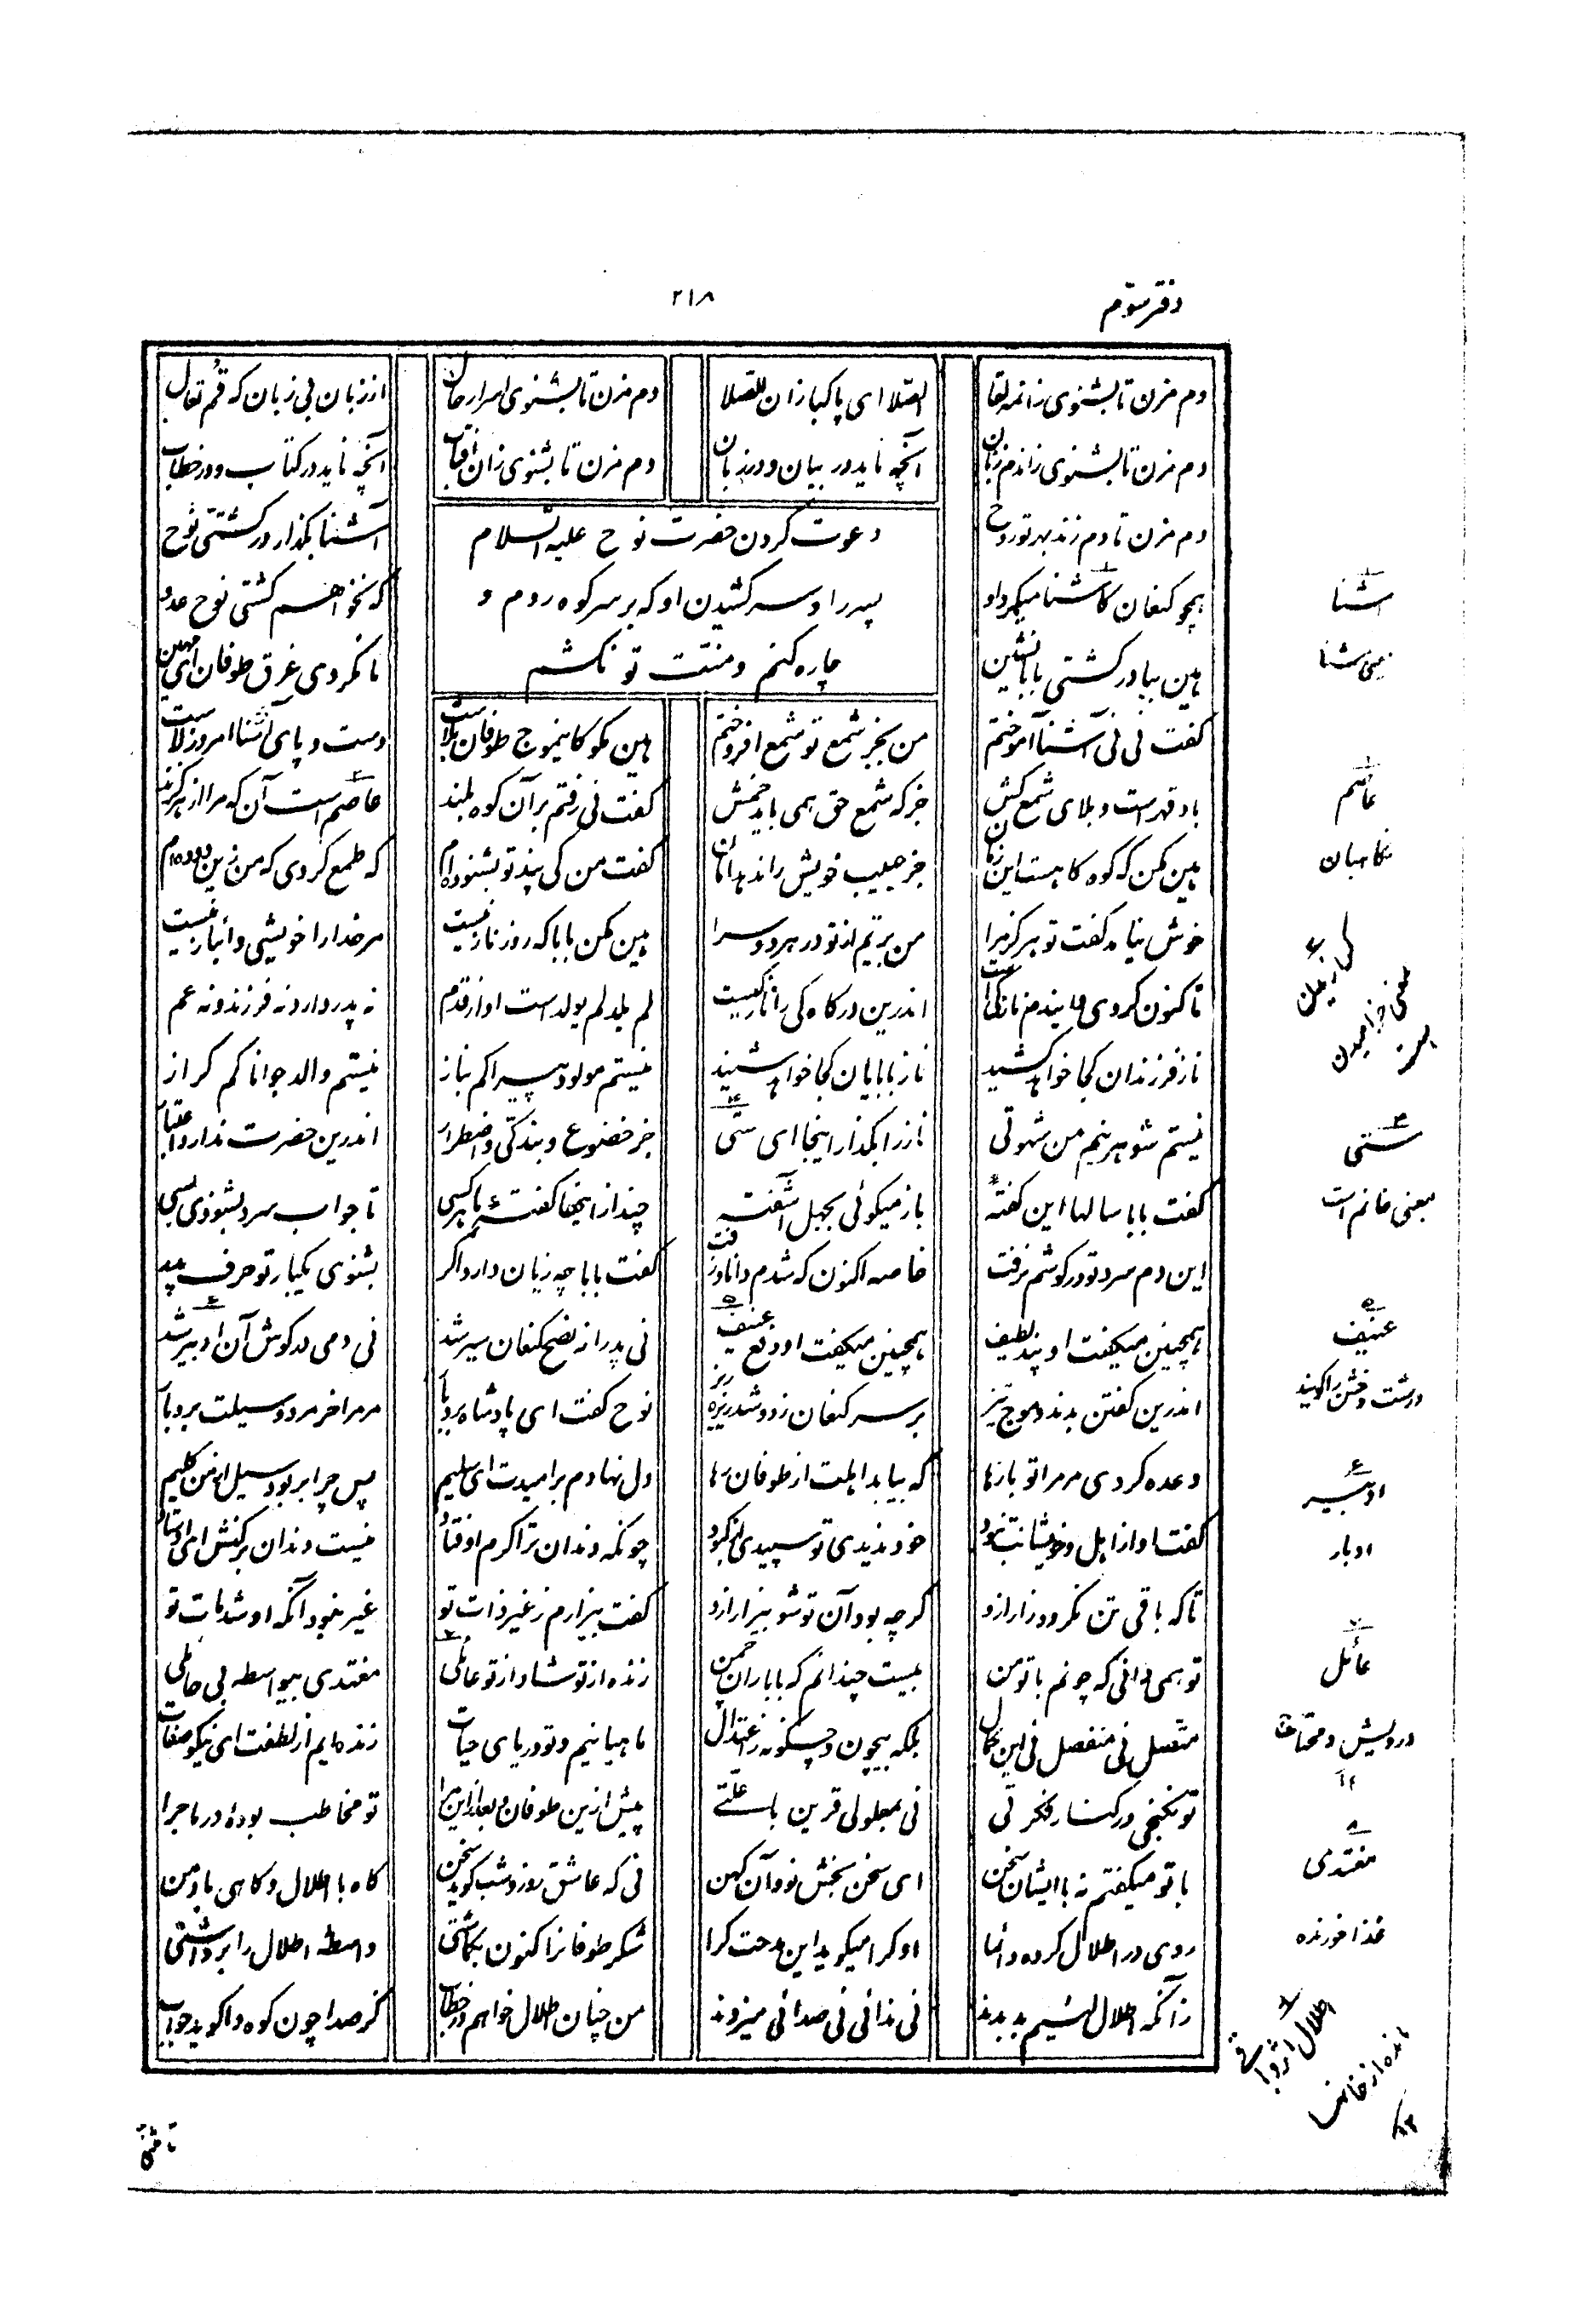 دفتر سوّم
۲۱۸
دم مزن تا بشنوی زانمه لقا
الصّلا ای پاکبازان الصّلا
دم مزن تا بشنوی اسرار حال
از زبان بی زبان که قُم تعال
دم مزن تا بشنوی زاندم زنان
آنچه ناید در بیان و در زبان
دم مزن تا بشنوی زان آفتاب
آنچه ناید در کتاب و در خطاب
دم مزن تا دم زند بهر تو روح
آشنا بگذار در کشتی نوح
دعوت کردن حضرت نوح علیه السّلام
پسر را و سر کشیدن او که بر سر کوه روم و
چاره کنم و منّت تو نکشم
همچو کنعان کاشنا میکرد او
که نخواهم کشتی نوح عدو
هین بیا در کشتی بابا نشین
تا نگردی غرق طوفان ای مهین
گفت نی نی آشنا آموختم
من بجز شمع تو شمع افروختم
هین مکو کاینموج طوفان بلاست
دست و پای آشنا امروز لاست
باد قهرست و بلای شمع کش
جز که شمع حق همی باید خمش
گفت نی رفتم بر آن کوه بلند
عاصم است آن که مرا از هر گزند
هین مکن که کوه کاهست این زمان
جز حبیب خویش را ندهد امان
گفت من کی پند تو بشنوده‌ام
که طمع کردی که من زین دوده‌ام
خوش نیامد گفت تو هرگز مرا
من بریّم از تو در هر دو سرا
هین مکن بابا که روز ناز نیست
مر خدا را خویشی و انباز نیست
تا کنون کردی و ایندم نازکیست
اندرین درگاه کی را ناز کیست
لم یلد لم یولد است او از قدم
نه پدر دارد نه فرزند و نه عم
ناز فرزندان کجا خواهد کشید
ناز بابایان کجا خواهد شنید
نیستم مولود پیرا کم بناز
نیستم والد جوانا کم گراز
نیستم شوهر نیم من شهوتی
ناز را بگذار اینجا ای ستی
جز خضوع و بندگی و اضطرار
اندرین حضرت ندارد اعتبار
گفت بابا سالها این گفتهٔ
باز میگوئی بجهل آشفتهٔ
چند ازاینها گفتهٔ با هر کسی
تا جواب سرد بشنودی بسی
این دم سرد تو در گوشم نرفت
خاصه اکنون که شدم دانا و زفت
گفت بابا چه زیان دارد اگر
بشنوی یکبار تو حرف پدر
همچنین میگفت او پند لطیف
همچنین میگفت او دفع عنیف
نی پدر از نصح کنعان سیر شد
نی دمی در گوش آن ادبیر شد
اندرین گفتن بدند و موج تیز
بر سر کنعان زد و شد ریز ریز
نوح گفت ای پادشاه بردبار
مر مرا خر مرد و سیلت برد بار
وعده کردی مر مرا تو بارها
که بیابد اهلت از طوفان رها
دل نهادم بر امیدت ای سلیم
پس چرا بربود سیل از من گلیم
گفت او از اهل و خویشانت نبود
خود ندیدی تو سپیدی از کبود
چونکه دندان ترا کرم اوفتاد
نیست دندان بر کنش ای اوستاد
تا که باقی تن نگردد زار ازو
گرچه بود آن تو شو بیزار ازو
گفت بیزارم ز غیر ذات تو
غیر نبود آنکه او شد مات تو
تو همی دانی که چونم با تو من
بیست چندانم که با باران چمن
زنده از تو شاد از تو عائلی
مغتذی بیواسطه بی حائلی
متّصل نی منفصل نی ای کمال
بلکه بیچون و چگونه ز اعتدال
ماهیانیم و تو دریای حیات
زنده‌ایم از لطفت ای نیکو صفات
تو نگنجی در کنار فکرتی
نی بمعلولی قرین با علّتی
پیش ازین طوفان و بعد از این مرا
تو مخاطب بودهٔ در ماجرا
با تو میگفتم نه با ایشان سخن
ای سخن بخش نو و آن کهن
نی که عاشق روز و شب گوید سخن
گاه با اطلال و گاهی با دمن
روی در اطلال کرده دائما
او کرا میگوید این مدحت کرا
شکر طوفانرا کنون بگماشتی
واسطهٔ اطلال را برداشتی
زآنکه اطلال لئیم بد بدند
نی ندائی نی صدائی میزدند
من چنان اطلال خواهم در خطاب
کز صدا چون کوه واگوید جواب
۱
اشنا
یعنی شنا
عاصم
نگاهبان
۴
ستی
بمعنی خانم است
۵
عنیف
درشت و خشن را گویند
۶
ادبیر
ادبار
۷
عائل
درویش و محتاج
۸
مغتذی
غذا خورنده